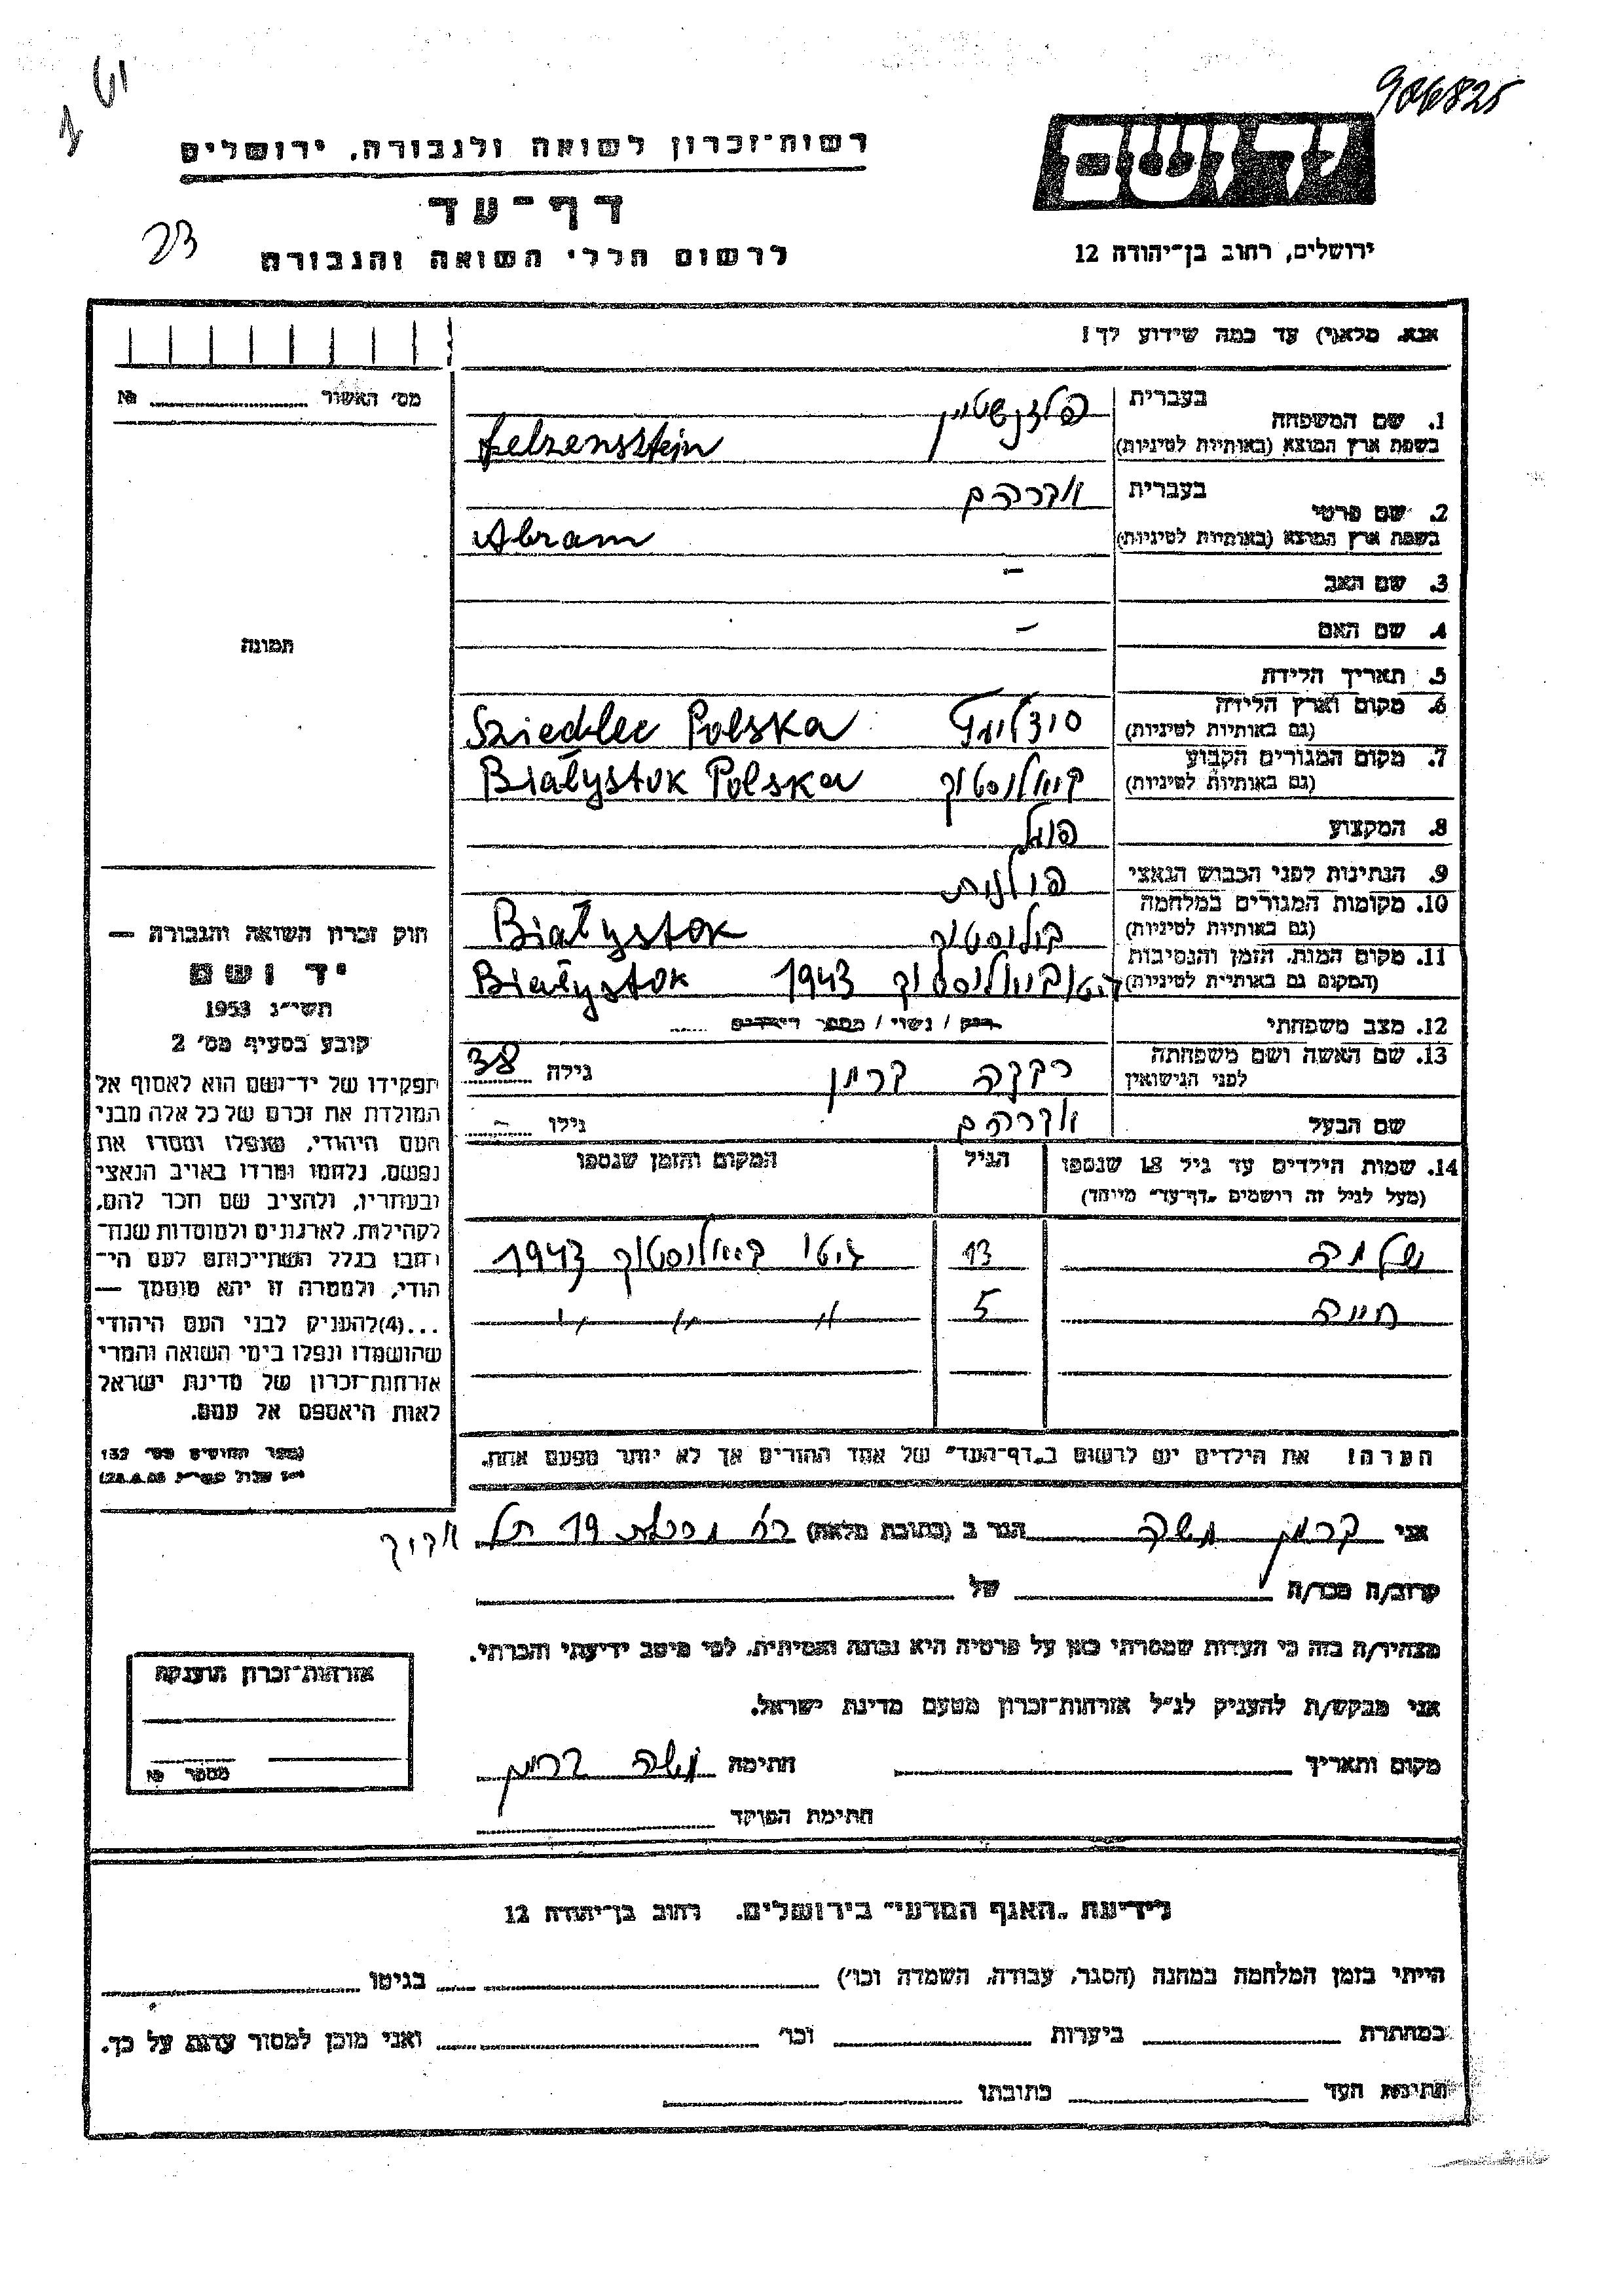 906825
61
רשות־זכרון לשואה ולגבורה, ירושלים
יד ושם
דף־עד
23
לרשום חללי השואה והגבורה
ירושלים, רחוב בן־יהודה 12
אנא, מלא(י) עד כמה שידוע לך!
מס׳ האשור № 
תמונה
1. שם המשפחה
בעברית פלזנשטיין
בשפת ארץ המוצא (באותיות לטיניות) Felzensztejn
2. שם פרטי
בעברית אברהם
בשפת ארץ המוצא (באותיות לטיניות) Abram
3. שם האב –
4. שם האם –
5. תאריך הלידה
6. מקום וארץ הלידה
(גם באותיות לטיניות) Sziedlec Polska
7. מקום המגורים הקבוע
(גם באותיות לטיניות) ביאליסטוק Białystok Polska
8. המקצוע פועל
9. הנתינות לפני הכבוש הנאצי פולנית
10. מקומות המגורים במלחמה
(גם באותיות לטיניות) ביליסטוק Białystok
11. מקום המות, הזמן והנסיבות
(המקום גם באותיות לטיניות) גטו ביאליסטוק 1943 Białystok
12. מצב משפחתי רוק / נשוי / מספר הילדים
13. שם האשה ושם משפחתה
לפני הנישואין רבקה ברמן גילה 38
שם הבעל אברהם גילו –
14. שמות הילדים עד גיל 18 שנספו
(מעל לגיל זה רושמים „דף־עד״ מיוחד)
הגיל
המקום והזמן שנספו
שלמה 13 גיטו ביאליסטוק 1943
חייה 5 -״- -״- -״-
הערה! את הילדים יש לרשום ב„דף־העד״ של אחד ההורים אך לא יותר מפעם אחת.
חוק זכרון השואה והגבורה —
יד ושם
תשי״ג 1953
קובע בסעיף מס׳ 2
תפקידו של יד־ושם הוא לאסוף אל
המולדת את זכרם של כל אלה מבני
העם היהודי, שנפלו ומסרו את
נפשם, נלחמו ומרדו באויב הנאצי
ובעוזריו, ולהציב שם וזכר להם,
לקהילות, לארגונים ולמוסדות שנח־
רבו בגלל השתייכותם לעם הי־
הודי, ולמטרה זו יהא מוסמך —
...(4) להעניק לבני העם היהודי
שהושמדו ונפלו בימי השואה והמרי
אזרחות־זכרון של מדינת ישראל
לאות היאספם אל עמם.
(ספר החוקים מס׳ 132
אני ברמן משה הגר ב (כתובת מלאה) 19 תל אביב
קרוב/ה מכר/ה של
מצהיר/ה בזה כי העדות שמסרתי כאן על פרטיה היא נכונה ואמיתית, לפי מיטב ידיעתי והכרתי.
אני מבקש/ת להעניק לנ״ל אזרחות־זכרון מטעם מדינת ישראל.
מקום ותאריך חתימה משה ברמן
חתימת הפוקד
אזרחות־זכרון הוענקה
מספר №
לידיעת „האגף המדעי״ בירושלים, רחוב בן־יהודה 12
הייתי בזמן המלחמה במחנה (הסגר, עבודה, השמדה וכו׳) בגיטו
במחתרת ביערות וכו׳ ואני מוכן למסור עדות על כך.
חתימת העד כתובתו